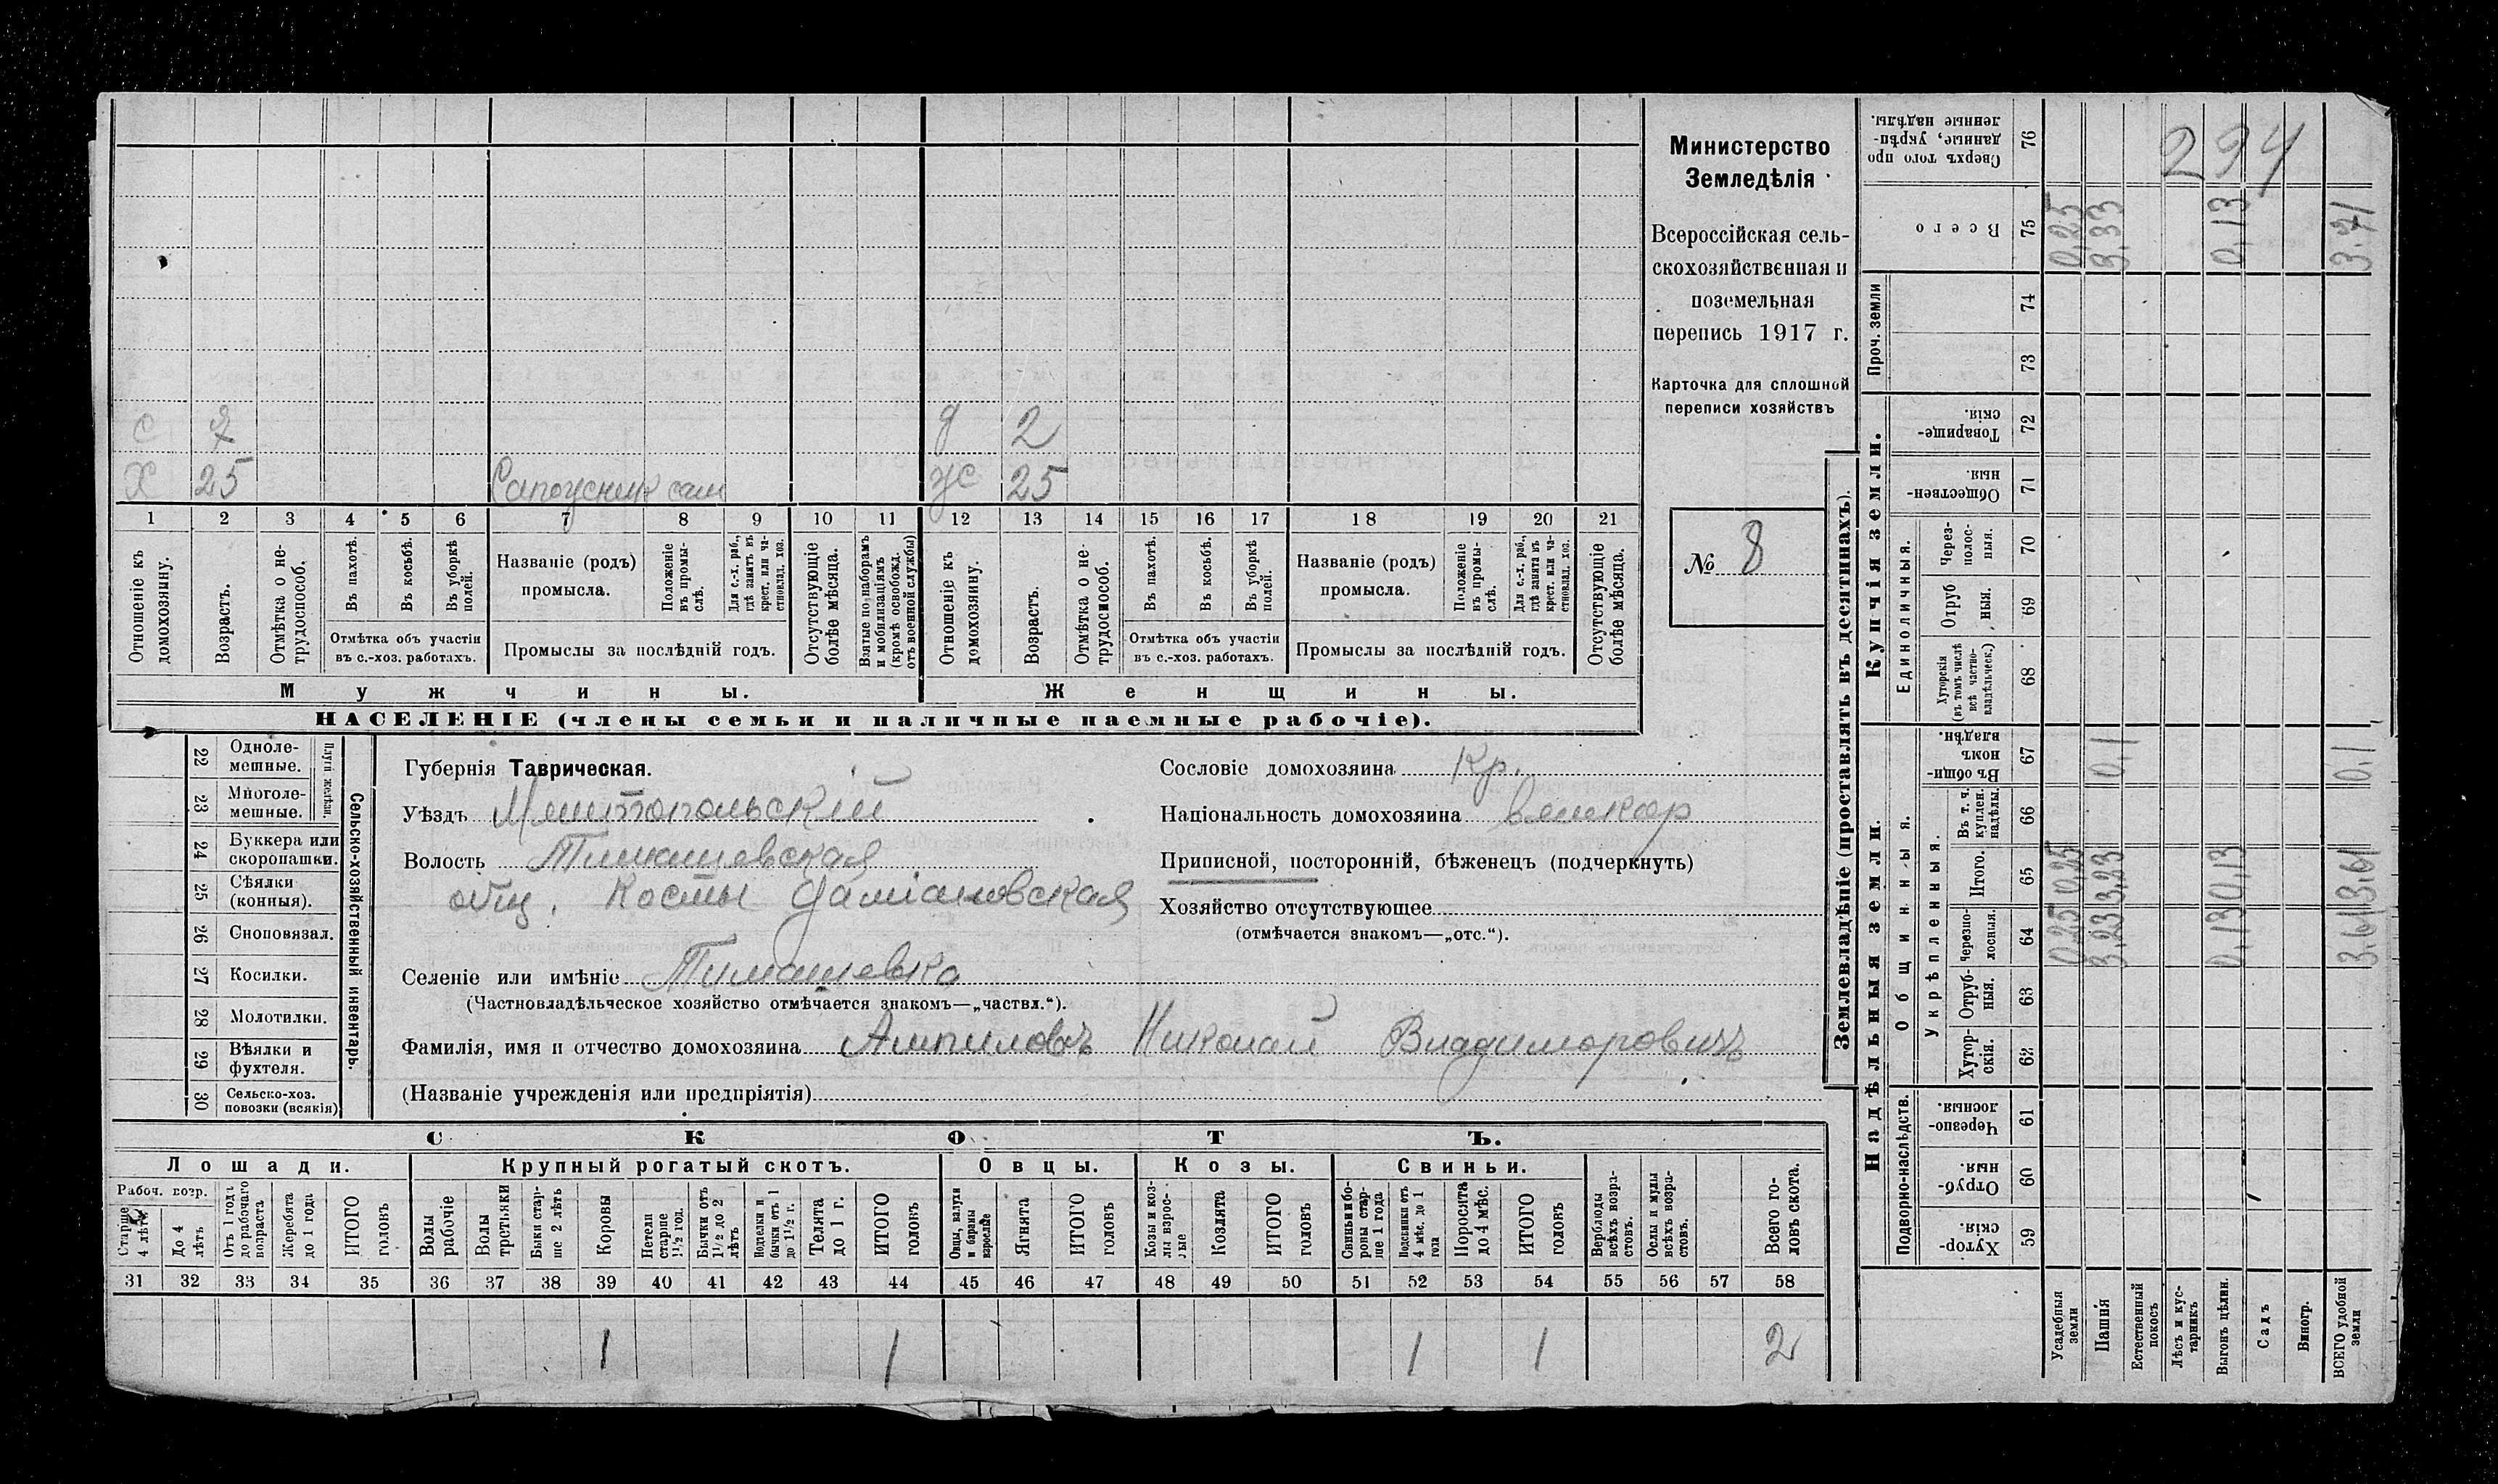 с 7 д 2
Х 25 Сапожник сам ж 25
1 2 3 4 5 6 7 8 9 10 11 12 13 14 15 16 17 18 19 20 21
Отношеніе къ домохозяину.
Возрастъ.
Отмѣтка о не-трудоспособ.
Въ пахотѣ.
Въ косьбѣ.
Въ уборкѣ полей.
Отмѣтка объ участіи
въ с.-хоз. работахъ.
Названіе (родъ)
промысла.
Положеніе въ промы-слѣ.
Для с.-х. раб., гдѣ занятъ въ крест. или ча-стновлад. хоз.
Промыслы за послѣдній годъ.
Отсутствующіе болѣе мѣсяца.
Взятые по наборамъ и мобилизаціямъ (кромѣ освобожд. отъ военной службы)
Отношеніе къ домохозяину.
Возрастъ.
Отмѣтка о не-трудоспособ.
Въ пахотѣ.
Въ косьбѣ.
Въ уборкѣ полей.
Отмѣтка объ участіи
въ с.-хоз. работахъ.
Названіе (родъ)
промысла.
Положеніе въ промы-слѣ.
Для с.-х. раб., гдѣ занята въ крест. или ча-стновлад. хоз.
Промыслы за послѣдній годъ.
Отсутствующіе болѣе мѣсяца.
Мужчины. Женщины.
НАСЕЛЕНІЕ (члены семьи и наличные наемные рабочіе).
Министерство
Земледѣлія
Всероссійская сель-
скохозяйственная и
поземельная
перепись 1917 г.
Карточка для сплошной
переписи хозяйствъ
№ 8
22 Одноле-
мешные.
23 Многоле-
мешные.
Плуги желѣзн.
24 Буккера или
скоропашки.
25 Сѣялки
(конныя).
26 Сноповязал.
27 Косилки.
28 Молотилки.
29 Вѣялки и
фухтеля.
30 Сельско-хоз.
повозки (всякія)
Сельско-хозяйственный инвентарь.
Губернія Таврическая.
Уѣздъ Мелитопольскій
Волость Тимашевская
общ. Космы Даміановская
Селеніе или имѣніе Тимашевка
(Частновладѣльческое хозяйство отмѣчается знакомъ—„частвл.“).
Фамилія, имя и отчество домохозяина Ампиловъ Николай Владимировичъ
(Названіе учрежденія или предпріятія)
Сословіе домохозяина Кр.
Національность домохозяина великор
Приписной, посторонній, бѣженецъ (подчеркнуть)
Хозяйство отсутствующее
(отмѣчается знакомъ—„отс.“).
СКОТЪ.
Лошади. Крупный рогатый скотъ. Овцы. Козы. Свиньи.
Рабоч. возр.
Старше 4 лѣтъ
До 4 лѣтъ
Отъ 1 года до рабочаго возраста
Жеребята до 1 года
ИТОГО головъ
Волы рабочіе
Волы третьяки
Быки стар-ше 2 лѣтъ
Коровы
Нетели старше 1½ год.
Бычки отъ 1½ до 2 лѣтъ
Подтелки и бычки отъ 1 до 1½ г.
Телята до 1 г.
ИТОГО головъ
Овцы, валухи и бараны взрослые
Ягнята
ИТОГО головъ
Козы и коз-лы взрос-лые
Козлята
ИТОГО головъ
Свиньи и бо-ровы стар-ше 1 года
Подсвинки отъ 4 мѣс. до 1 года
Поросята до 4 мѣс.
ИТОГО головъ
Верблюды всѣхъ возра-стовъ.
Ослы и мулы всѣхъ возра-стовъ.
Всего го-ловъ скота.
31 32 33 34 35 36 37 38 39 40 41 42 43 44 45 46 47 48 49 50 51 52 53 54 55 56 57 58
1 1 1 1 2
Землевладѣніе (проставлять въ десятинахъ).
Надѣльныя земли. Купчія земли. Проч. земли
Подворно-наслѣдств.
Общинныя.
Укрѣпленныя.
Единоличныя.
Хутор-скія. 59
Отруб-ныя. 60
Черезпо-лосныя. 61
Хутор-скія. 62
Отруб-ныя. 63
Черезпо-лосныя. 64
Итого. 65
Въ т. ч. куплен. надѣлы. 66
Въ общин-номъ владѣн. 67
Хуторскія (въ томъ числѣ всѣ частно-владѣльческ.) 68
Отруб ныя. 69
Через-полос-ныя. 70
Обществен-ныя. 71
Товарище-скія. 72
73
74
Всего 75
Сверхъ того про данные, укрѣп-ленные надѣлы. 76
Усадебныя земли 0,25 0,25 0,25
Пашня 3,23 3,23 0,1 3,33
Естественный покосъ
Лѣсъ и кус-тарникъ
Выгонъ цѣлин. 0,13 0,13 0,13
Садъ
Виногр.
ВСЕГО удобной земли 3.61 3,61 0,1 3.71
294